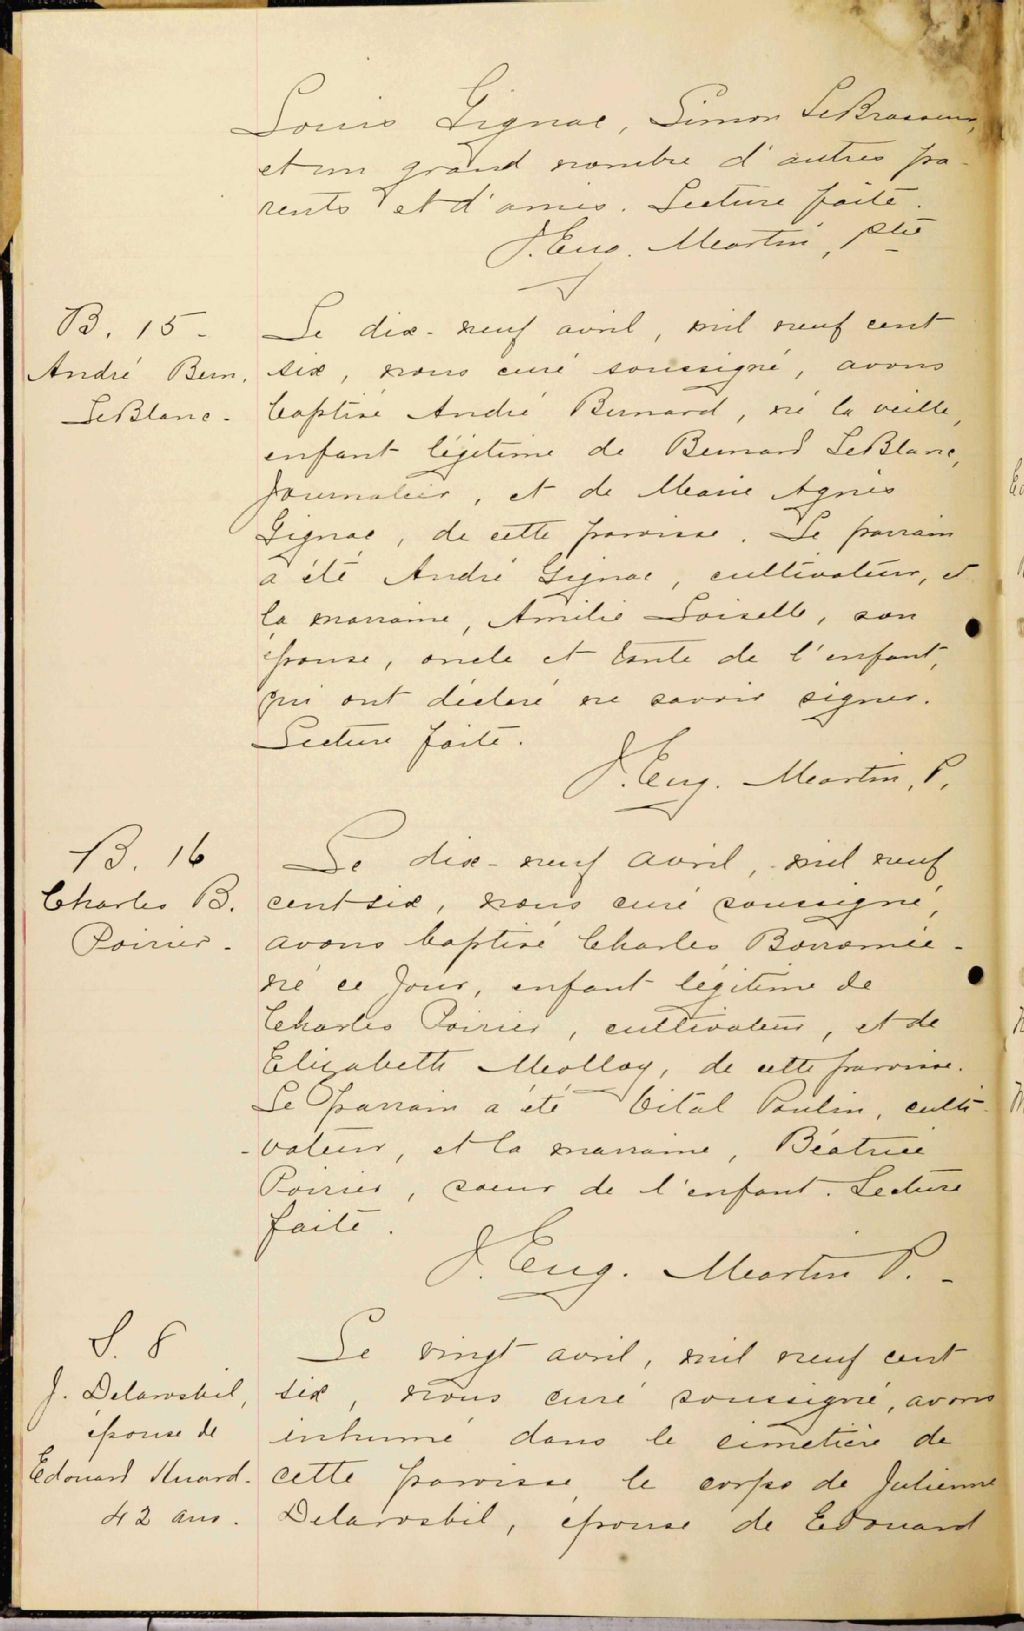 Louis Gignac, Simon LeBrasseur,
et un grand nombre d'autres pa-
rents et d'amis. Lecture faite.
J. Eug. Martin, Ptre
B. 15 -
André Bern.
LeBlanc -
Le dix-neuf avril, mil neuf cent
six, nous curé soussigné, avons
baptisé André Bernard, né la veille,
enfant légitime de Bernard LeBlanc,
Journalier, et de Marie Agnès
Gignac, de cette paroisse. Le parrain
a été André Gignac, cultivateur, et
la marraine, Amélie Loiselle, son
épouse, oncle et tante de l'enfant,
qui ont déclaré ne savoir signer.
Lecture faite.
J. Eug. Martin, P.
B. 16
Charles B.
Poirier -
Le dix-neuf avril, mil neuf
cent six, nous curé soussigné,
avons baptisé Charles Borromée -
né ce Jour, enfant légitime de
Charles Poirier, cultivateur, et de
Elizabeth Molloy, de cette paroisse.
Le parrain a été Vital Poulin, culti-
-vateur, et la marraine, Béatrice
Poirier, soeur de l'enfant. Lecture
faite.
J. Eug. Martin P. -
S. 8
J. Delarosbil,
épouse de
Edouard Huard -
42 ans.
Le vingt avril, mil neuf cent
six, nous curé soussigné, avons
inhumé dans le cimetière de
cette paroisse, le corps de Julienne
Delarosbil, épouse de Edouard